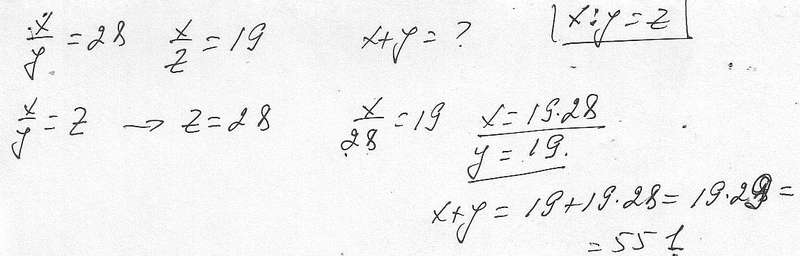 x/y = 28 x/z = 19 x+y = ? x:y = z
x/y = z → z = 28 x/28 = 19 x = 19·28
y = 19.
x+y = 19+19·28 = 19·29 =
= 551